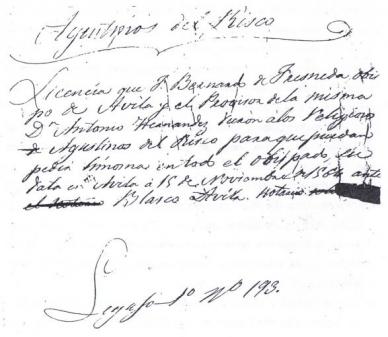 Agustinos del Risco
Licencia que F. Bernard de Fresneda obis
po de Avila y el Provisor de la misma
Dn Antonio Hernandez dieron a los Religiosos
de Agustinos del Risco para que puedan
pedir limosna en tod el obispado su
data en Avila á 15 de Noviembre de 1564 ante
Blasco Davila Notario
Legajo 1º Nº 193.